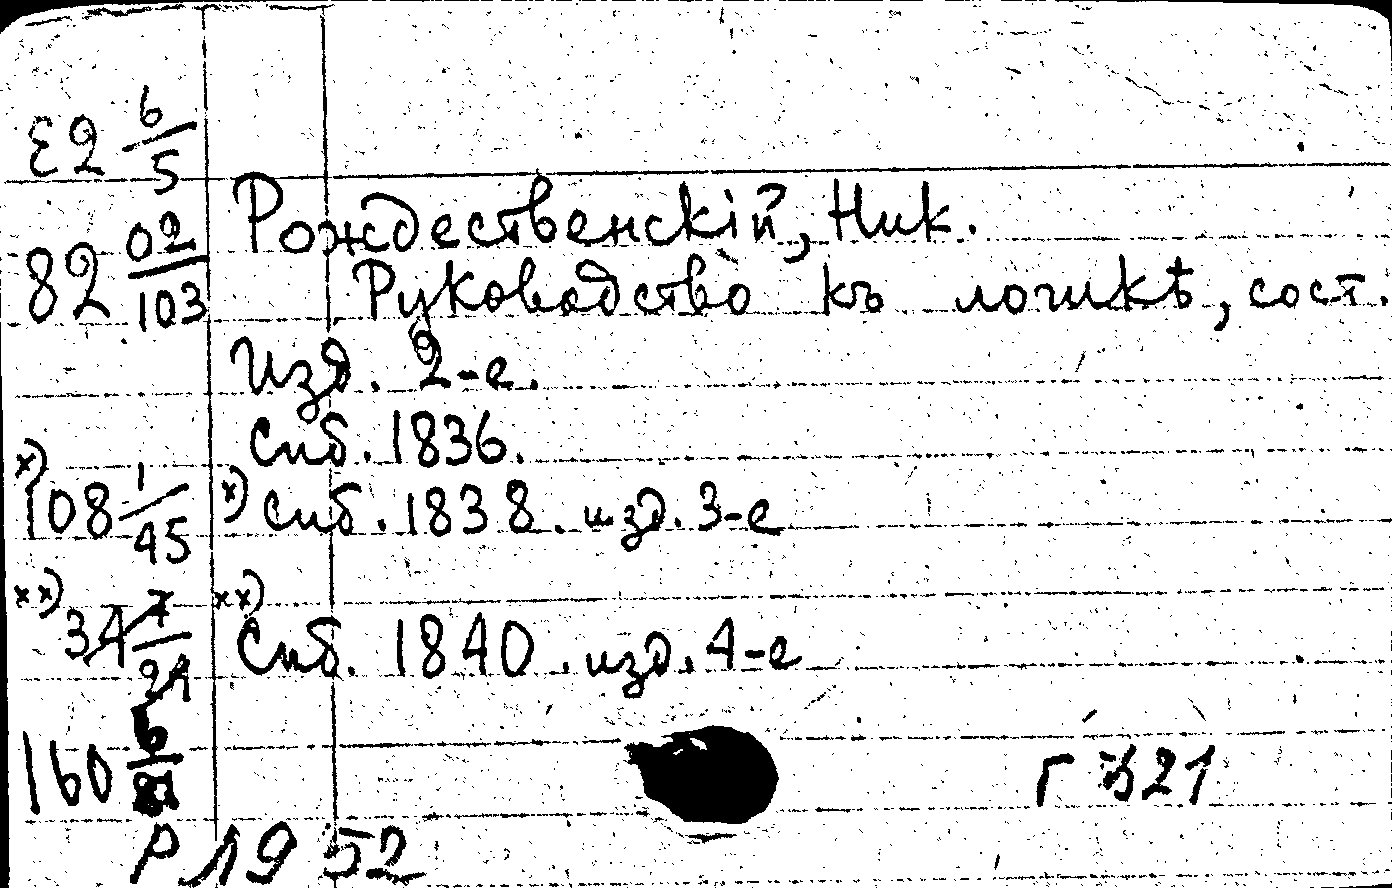 82 6/5
82 02/103 Рождественскій, Ник.
Руководство къ логикѣ, сост.
Изд. 2-е.
Спб. 1836.
х) 108 1/45 х) Спб. 1838. изд. 3-е
хх) 34 7/24 хх) Спб. 1840. изд. 4-е
160 6/
Г 321
Р 19 52